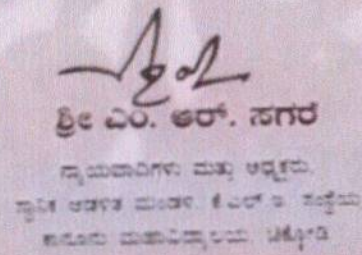 ಶ್ರೀ ಎಂ. ಆರ್. ಸಗರೆ
ನ್ಯಾಯವಾದಿಗಳು ಮತ್ತು ಅಧ್ಯಕ್ಷರು,
ಸ್ಥಾನಿಕ ಆಡಳಿತ ಮಂಡಳಿ, ಕೆ.ಎಲ್.ಇ. ಸಂಸ್ಥೆಯ
ಕಾನೂನು ಮಹಾವಿದ್ಯಾಲಯ, ಚಿಕ್ಕೋಡಿ